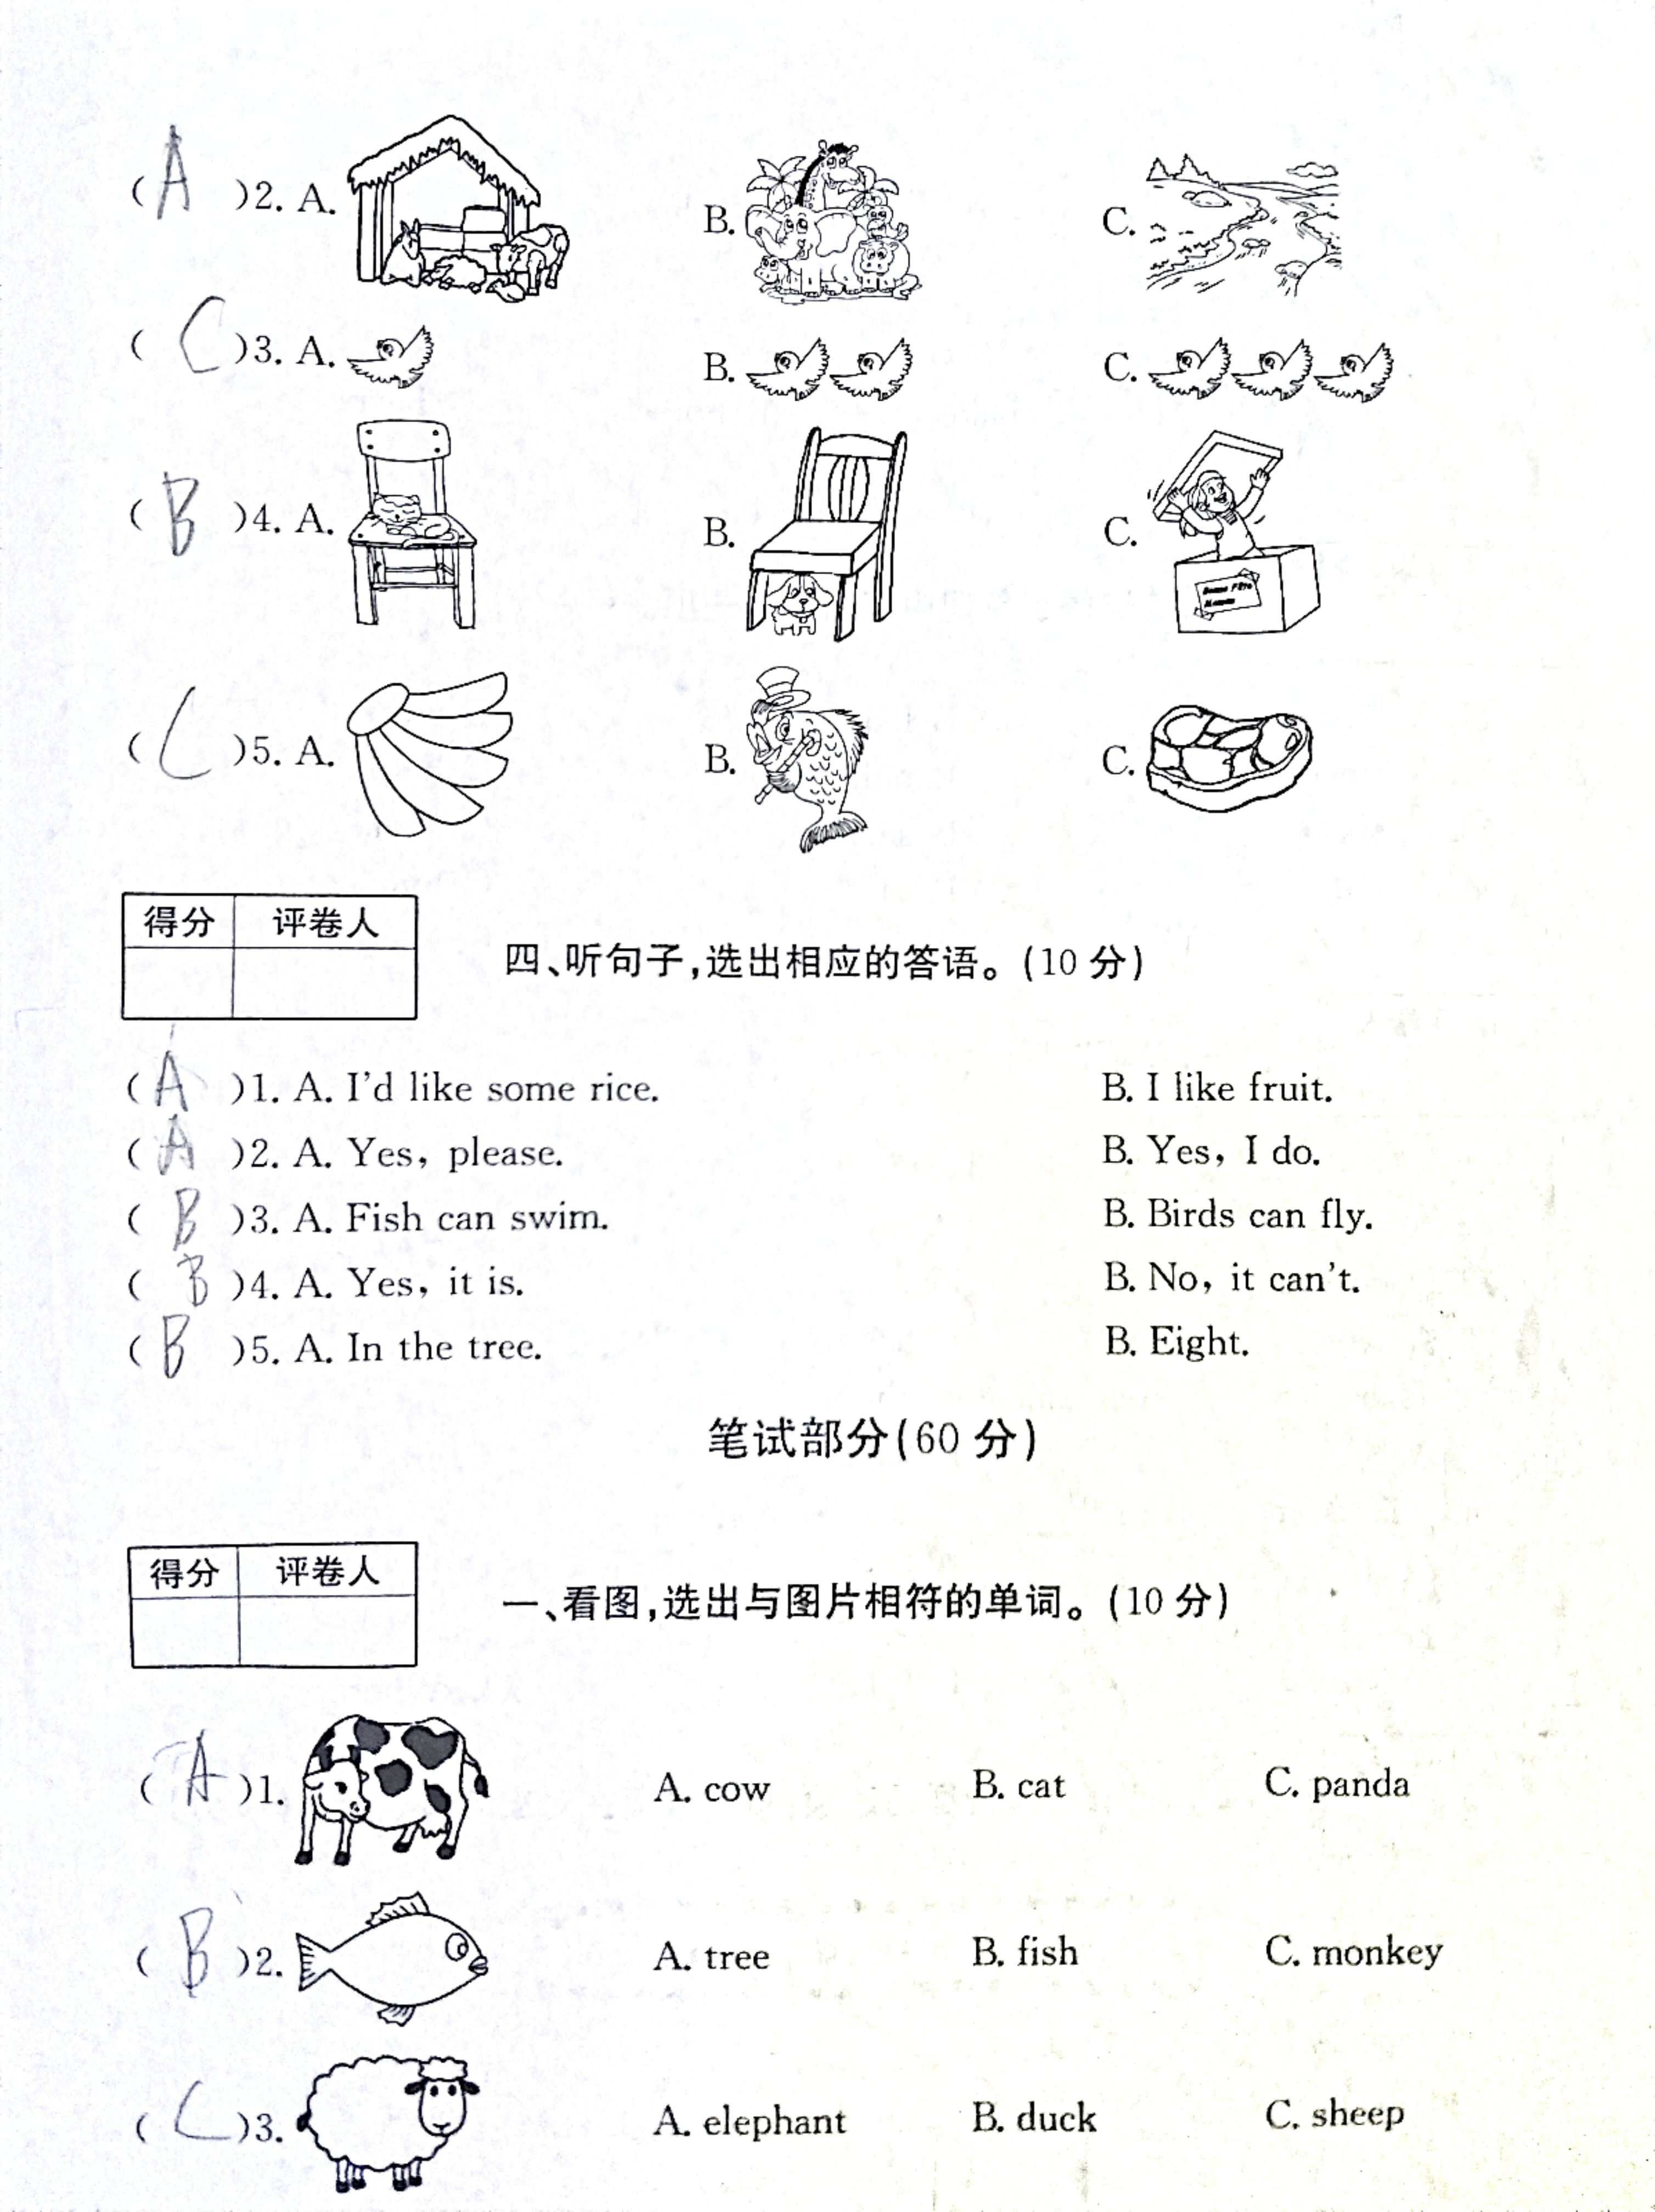 ( A )2. A. B. C.
( C )3. A. B. C.
( B )4. A. B. C.
( C )5. A. B. C.
得分 评卷人
四、听句子,选出相应的答语。(10 分)
( A )1. A. I'd like some rice. B. I like fruit.
( A )2. A. Yes, please. B. Yes, I do.
( B )3. A. Fish can swim. B. Birds can fly.
( B )4. A. Yes, it is. B. No, it can't.
( B )5. A. In the tree. B. Eight.
笔试部分(60 分)
得分 评卷人
一、看图,选出与图片相符的单词。(10 分)
( A )1. A. cow B. cat C. panda
( B )2. A. tree B. fish C. monkey
( C )3. A. elephant B. duck C. sheep